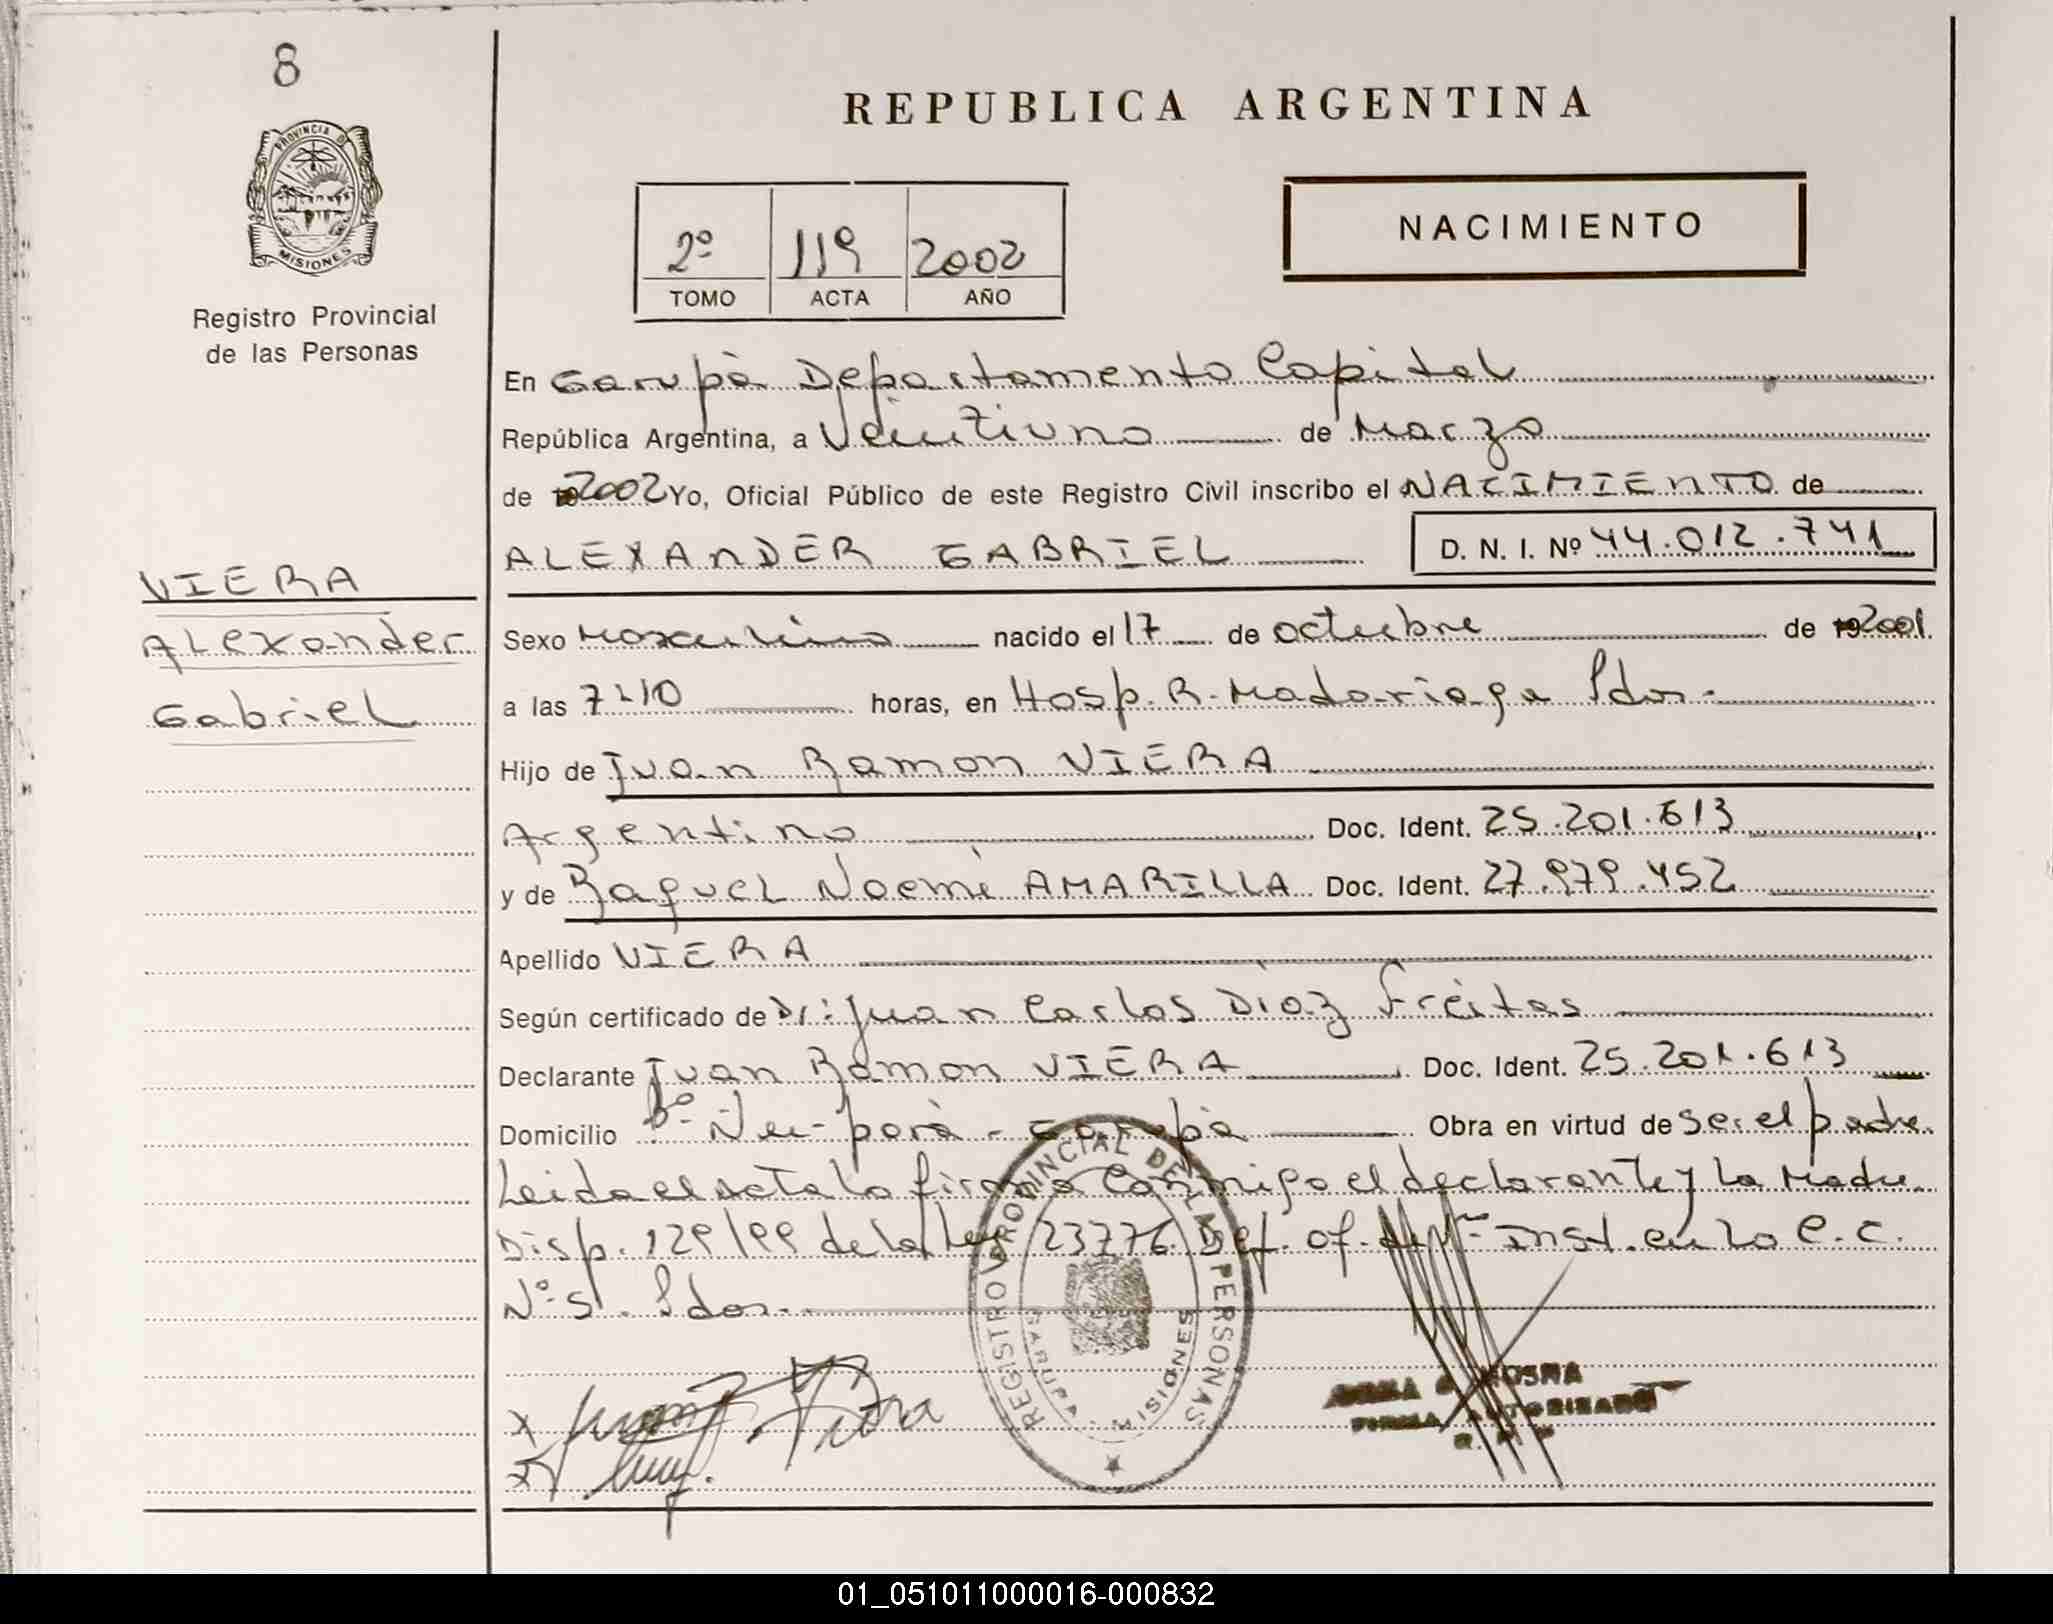 8
PROVINCIA DE
MISIONES
Registro Provincial
de las Personas
VIERA
Alexander
Gabriel
REPUBLICA ARGENTINA
2º 119 2002
TOMO ACTA AÑO
NACIMIENTO
En Garupà Departamento Capital
República Argentina, a Veintiuno de Marzo
de 2002 Yo, Oficial Público de este Registro Civil inscribo el NACIMIENTO de
ALEXANDER GABRIEL D. N. I. Nº 44.012.741
Sexo Masculino nacido el 17 de octubre de 2001
a las 7:10 horas, en Hosp. R. Madariaga Pdas.
Hijo de Juan Ramon VIERA
Argentino Doc. Ident. 25.201.613
y de Raquel Noemi AMARILLA Doc. Ident. 27.979.452
Apellido VIERA
Según certificado de Dr: Juan Carlos Diaz Freitas
Declarante Juan Ramon VIERA Doc. Ident. 25.201.613
Domicilio Bº Ñu-porà - Garupà Obra en virtud de ser el padre
Leida el acta la firma conmigo el declarante y la Madre
Disp. 129/99 de la Ley 23776 Def. of. Inst. en la C.C.
Nº 5. Pdas.
REGISTRO PROVINCIAL DE LAS PERSONAS
GARUPA - MISIONES
x Viera
x
FIRMA AUTORIZADA
01_051011000016-000832